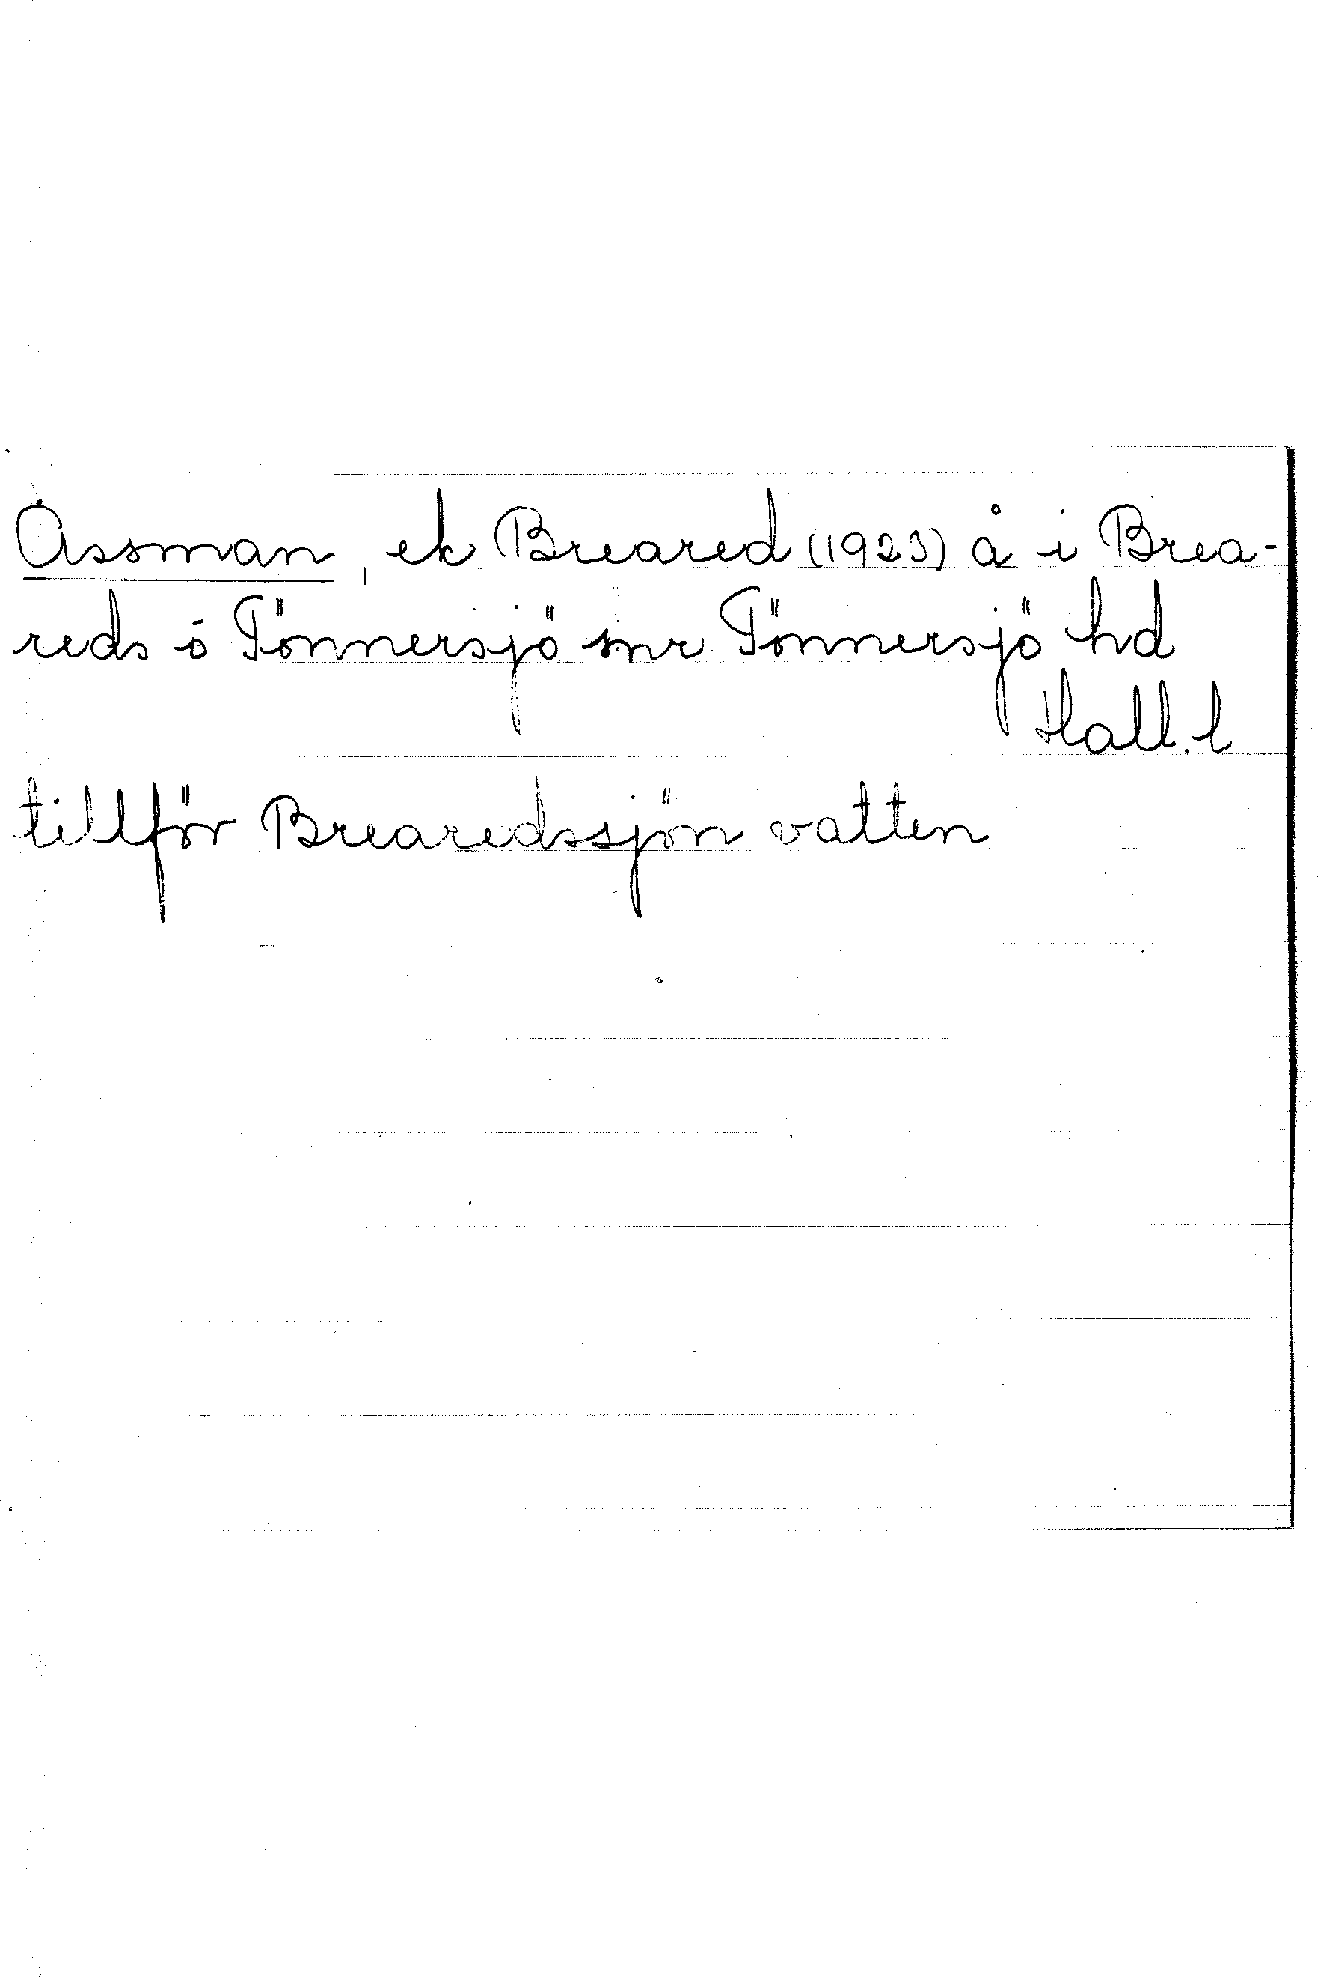 Åssman, ek Breared (1923) å i Brea-
reds o Tönnersjö snr Tönnersjö hd
Hall. l
tillför Brearedssjön vatten